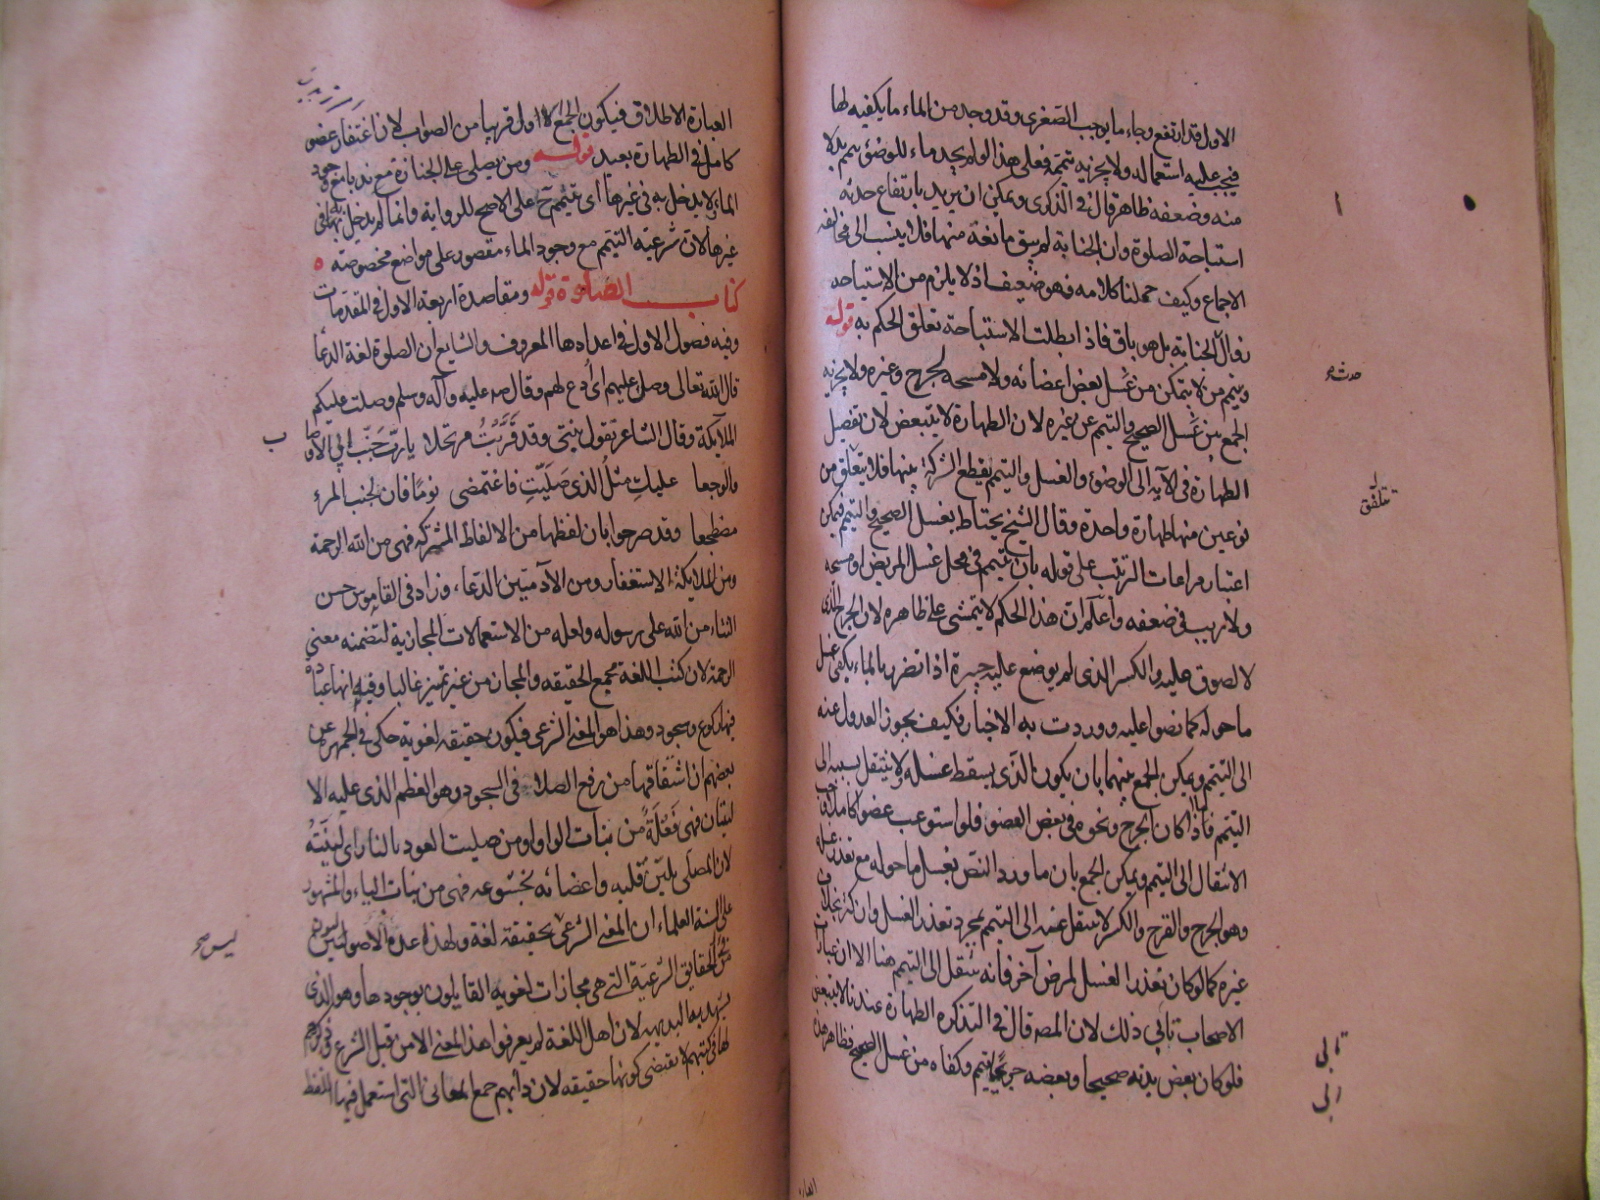 الاول قد ارتفع وجاء ما يوجب الصغرى وقد وجد من الماء ما يكفيه لها
فيجب عليه استعماله ولا يجزيه تيممه فعلى هذا لو لم يجد ماء للوضوء يتيمم بدلا
منه وضعفه ظاهر قال في الذكرى ويمكن ان يريد بارتفاع حدثه
استباحة الصلوة وان الجنابة لم يبق مانعة منها فلا ينسب الى مخالفه
الاجماع وكيف حملنا كلامه فهو ضعيف اذ لا يلزم من الاستباحه
زوال الجنابة بل هو باق فاذا بطلت الاستباحة تعلق الحكم به قوله
ويتيمم من لا يتمكن من غسل بعض اعضائه ولا مسحه لجرح وغيره ولا يجزيه
الجمع بين غسل الصحيح والتيمم عن غيره لان الطهارة لا يتبعض لان تفصيل
الطهارة في الآية الى الوضوء والغسل والتيمم يقطع الشركة بينها فلا يتعلق من
نوعين منها طهارة واحدة وقال الشيخ يحتاط بغسل الصحيح والتيمم فيمكن
اعتبار مراعات الترتيب على قوله بان يتيمم في محل غسل المريض او مسحه
ولا ريب في ضعفه واعلم ان هذا الحكم لا يتمشى على ظاهره لان الجرح الذي
لا لصوق عليه والكسر الذي لم يوضع عليه جبيرة اذا تضرر بالماء يكفي غسل
ما حوله كما نصوا عليه ووردت به الاخبار فكيف يجوز العدول عنه
الى التيمم ويمكن الجمع بينهما بان يكون الذي يسقط غسله ولا ينتقل بسببه الى
التيمم ما اذا كان الجرح ونحوه في بعض العضو فلو استوعب عضوا كاملا وجب
الانتقال الى التيمم ويمكن الجمع بان ما ورد النص بغسل ما حوله مع تعذر غسله
وهو الجرح والقرح والكسر لا ينتقل عنه الى التيمم بمجرد تعذر الغسل وان كثر بخلاف
غيره كما لو كان تعذر الغسل لمرض آخر فانه ينتقل الى التيمم هنا الا ان عبارات
الاصحاب تابي ذلك لان المصـ قال في التذكرة الطهارة عندنا لا يتبعض
فلو كان بعض بدنه صحيحا وبعضه جريحا تيمم وكفاه من غسل الصحيح فظاهر هذه
حدثه
تتلفق
تابي
العبارة الاطلاق فيكون الجمع الاول قريبا من الصواب لان اغتفار عضو
كامل في الطهارة بعيد قوله ومن يصلي على الجنازة مع ندبا مع وجود
الماء لا يدخل به في غيرها اي يتيمم على الاصح للرواية وانما لم يدخل به في
غيرها لان شرعية التيمم مع وجود الماء مقصور على مواضع مخصوصة ه
كتاب الصلوة قوله ومقاصده اربعة الاول في المقدمات
وفيه فصول الاول في اعدادها المعروف والشايع ان الصلوة لغة الدعا
قال الله تعالى وصل عليهم اي ادع لهم وقال صـ عليه وآله وسلم وصلت عليكم
الملايكة وقال الشاعر تقول بنتي وقد قَرَّبْتُ مرتحلا يا ربّ جَنّب ابي الاوصاب
والوجعا عليك مثلُ الذي صَلَّيْتِ فاغتمضي نومًا فان لجنب المرءِ
مضطجعا وقد صرحوا بان لفظها من الالفاظ المشتركة فهي من الله الرحمة
ومن الملايكة الاستغفار ومن الآدميين الدّعاء وزاد في القاموس حسن
الثناء من الله على رسوله ولعله من الاستعمالات المجازية لتضمنه معنى
الرحمة لان كتب اللغة تجمع الحقيقة والمجاز من غير تميز غالبا وفيه انها عبادة
فيها ركوع وسجود وهذا هو المعنى الشرعي فيكون حقيقة لغوية حكى في الجمهرة عن
بعضهم ان اشتقاقها من رفع الصلا في السجود وهو العظم الذي عليه الا
ليتان فهي فَعْلَة من بنات الواو او من صليت العود بالنار اي لينته
لان المصلي يلين قلبه واعضائه بخشوعه فهي من بنات الياء والمشهور
على السنة العلماء ان المعنى الشرعي بحقيقة لغة ولهذا عده الاصوليون
من الحقايق الشرعية التي هي مجازات لغوية القايلون بوجودها وهو الذي
يشهد به البديهة لان اهل اللغة لم يعرفوا هذا المعنى الا من قبل الشرع وذكرهم
لها في كتبهم لا يقتضي كونها حقيقه لان دأبهم جمع المعاني التي استعمل فيها اللفظ
ليس صح